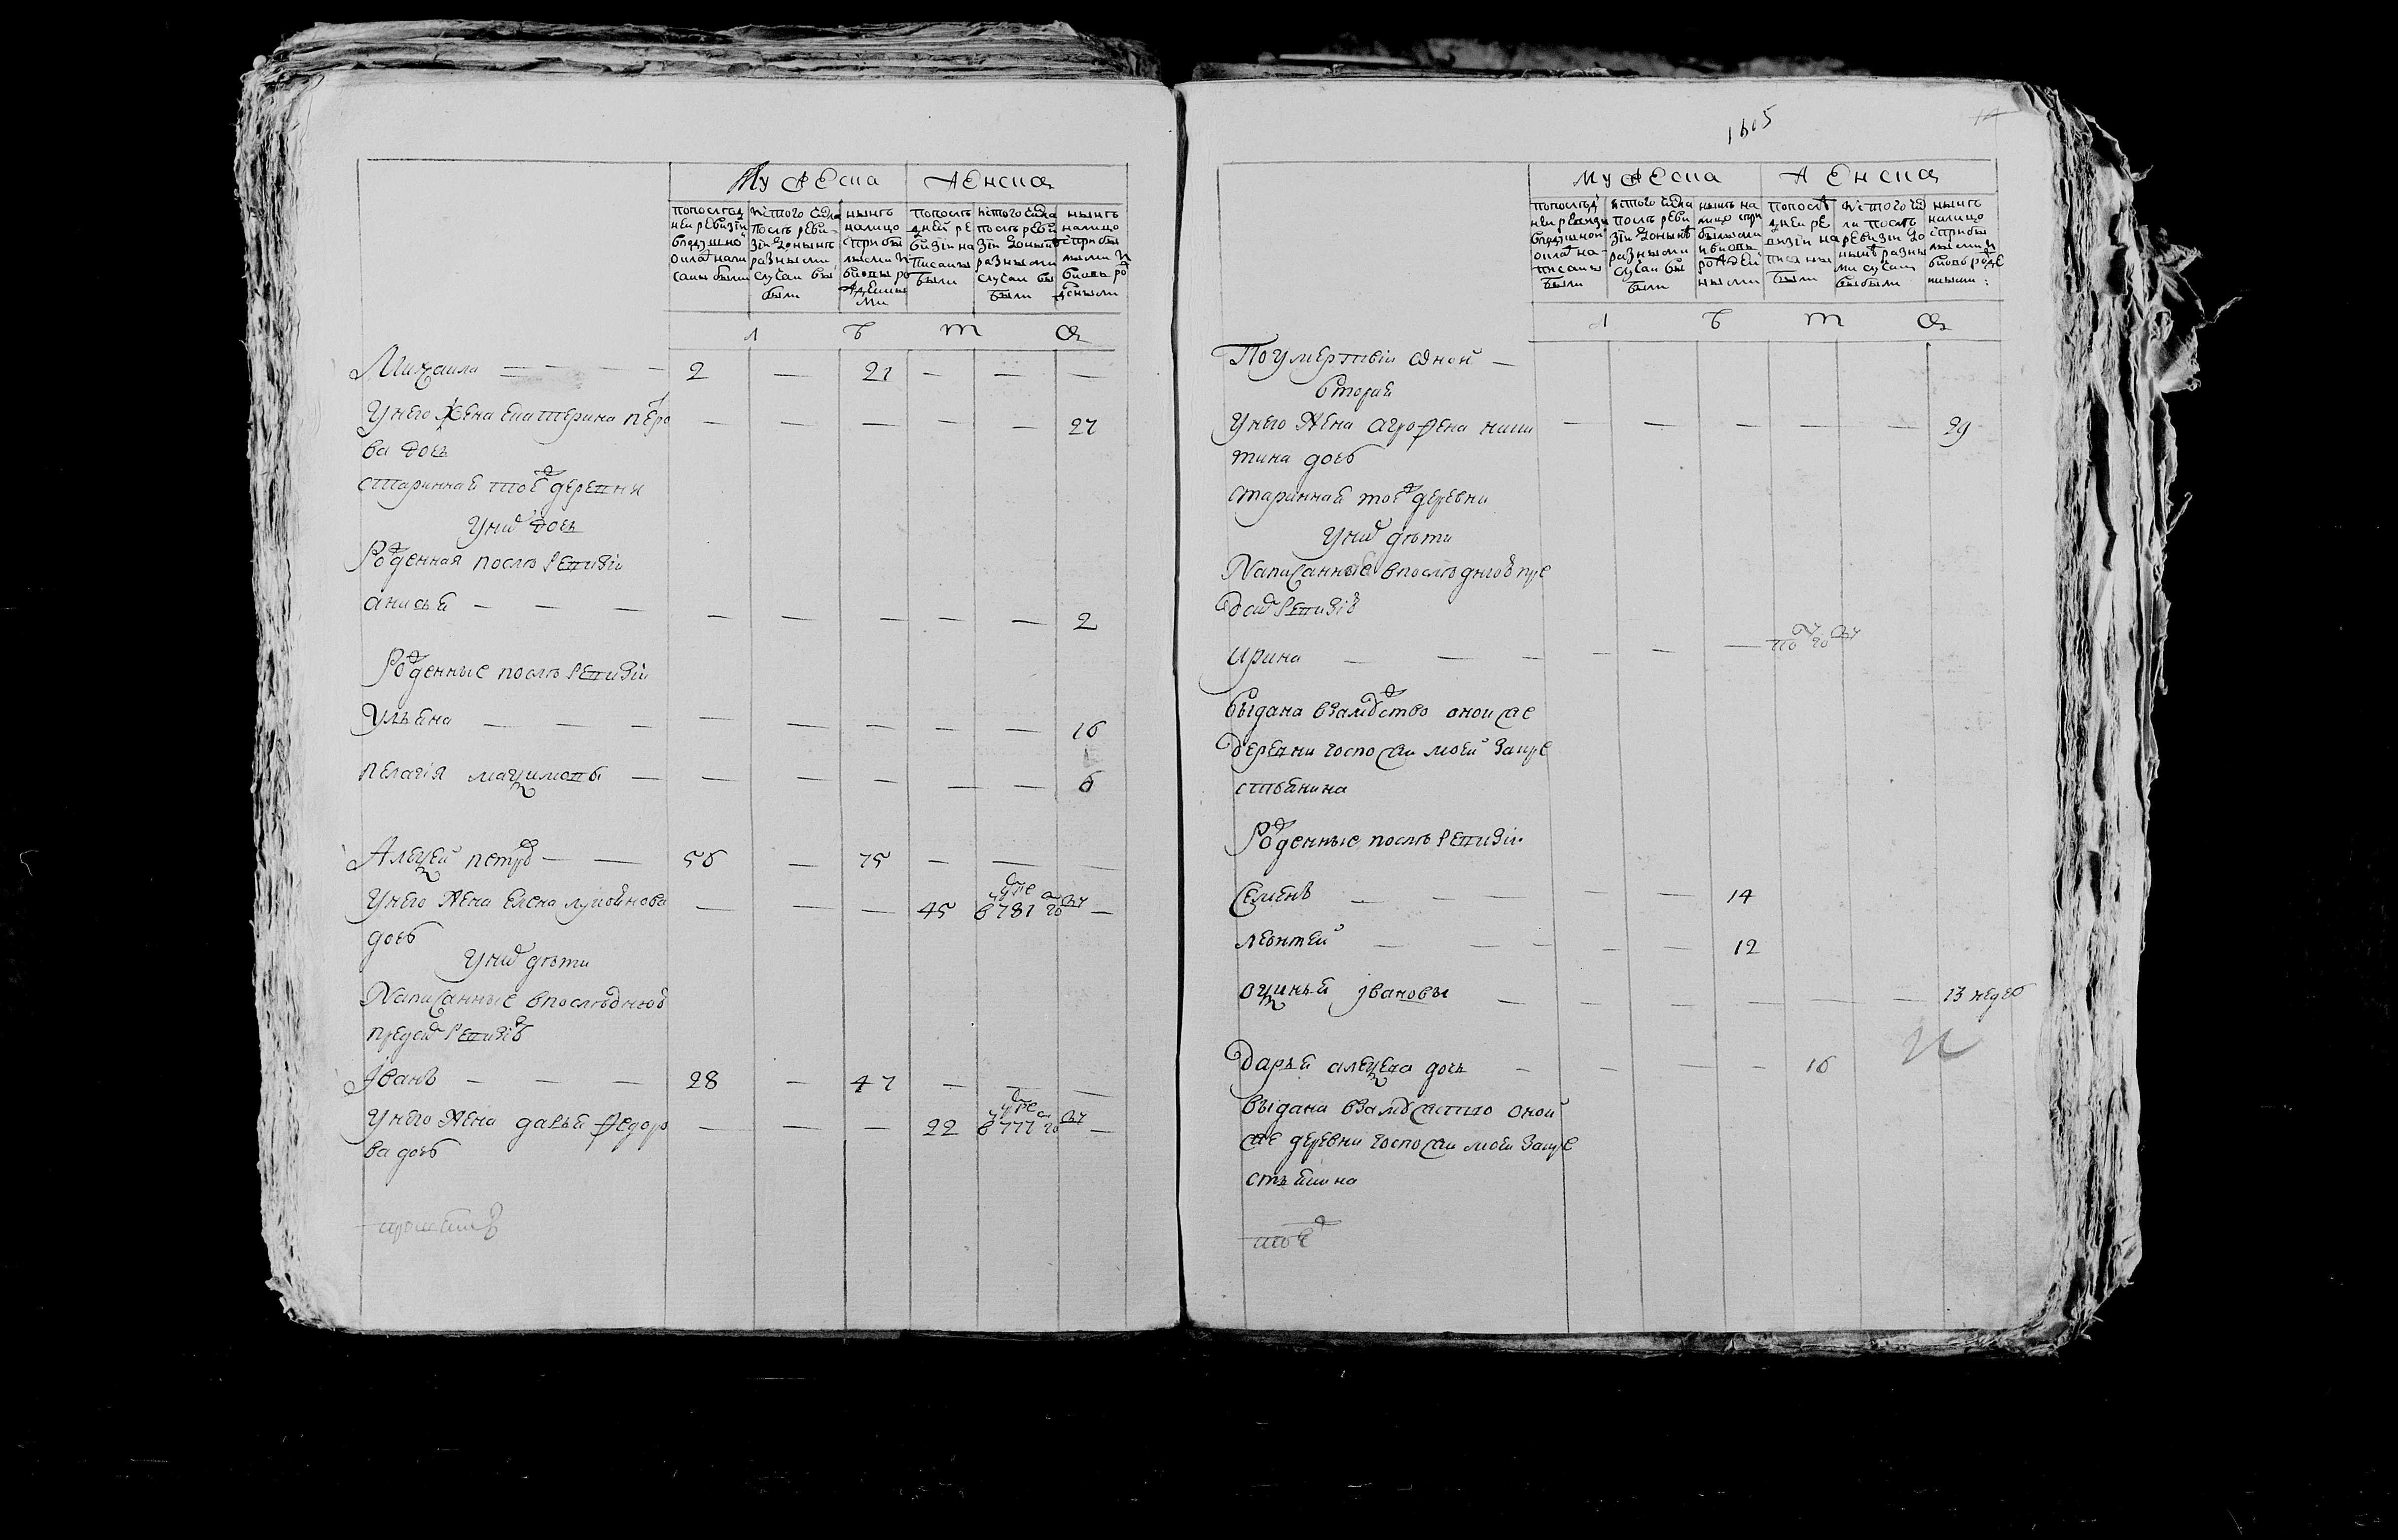 мужеска женска
попослѣд ней ревизіи вподушной окладъ напи саны были
исътого числа послѣ реви зіи доныне разными случаи вы были
нынѣ налицо сприбы лыми и вновь ро жденны ми
попослѣ дней ре визіи на писаны были
исътого числа послѣ реви зіи доныне разными случаи вы были
нынѣ налицо сприбы лыми и вновь рож денными
л ѣ т а
Михаила — — — — 2 — 21 — — —
Унего жена екатерина петро — — — — — 27
ва дочь
стариннай тоеж деревни
Уних дочь
Рожденная послѣ ревизіи
анисья — — — — — — — — 2
Рожденные послѣ ревизіи
Ульяна — — — — — — — — 16
пелагія максимовы — — — — — — 6
Алексей петров — — 56 — 75 — — —
Унего жена елена — — — 45 в 781 году —
дочь
Уних дѣти
Написанные впослѣднюю
пред сим ревизію
Іванъ — — — 28 — 47 — — —
Унего жена дарья федоро — — — 22 в 777 году —
ва дочь
1605
мужеска женска
попослѣд ней ревизіи вподушной окладъ на писаны были
исътого числа послѣ реви зіи доныне разными случаи вы были
нынѣ на лицо спри былыми и вновь рожден ными
попослѣ дней ре визіи на писаны были
исътого чис ла послѣ ревизіи до нынѣ разны ми случаи выбыли
нынѣ налицо сприбы лыми и вновь рожде нными
л ѣ т а
Поумертвіи оной —
вторая
Унего жена агрофена ники — — — — — 29
тина дочь
стариннай тоеж деревни
Уних дѣти
Написанные впослѣднюю пре
д сим ревизію
ирина — — — — — —
выдана взамужство оной же
деревни господи моей закре
стьянина
Рожденные послѣ ревизіи
Семенъ — — — — — 14
леонтей — — — — — 12
оксинья Івановы — — — — — — 13 недел
Дарья алексева дочь — — — — 16
выдана взамужство оной
же деревни господи моей закре
стьянина
тоеж